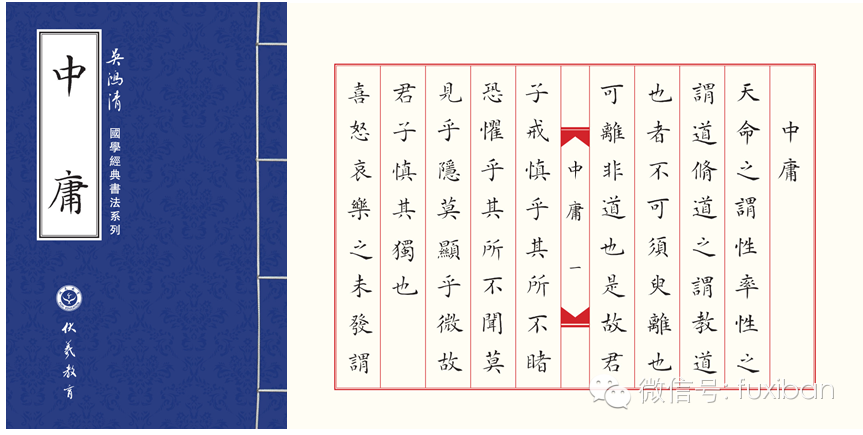 中庸
吳鴻清
國學經典書法系列
伏羲教育
中庸
天命之謂性率性之
謂道脩道之謂教道
也者不可須臾離也
可離非道也是故君
中庸 一
子戒慎乎其所不睹
恐懼乎其所不聞莫
見乎隱莫顯乎微故
君子慎其獨也
喜怒哀樂之未發謂
微信号: fuxiban